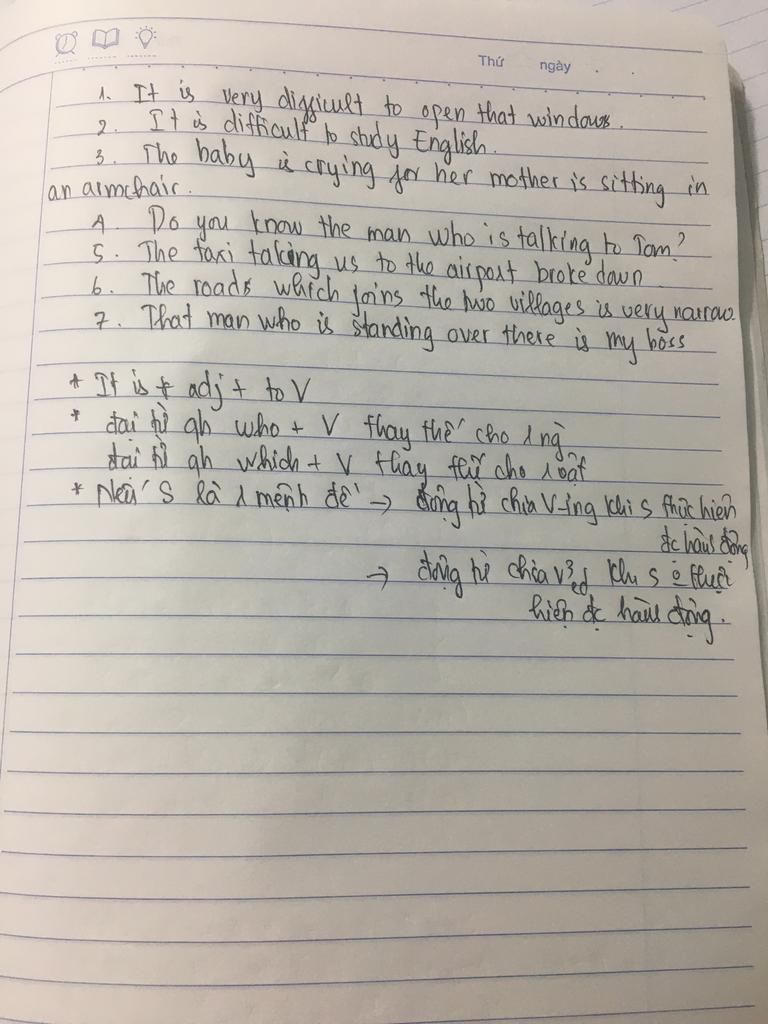 Thứ ngày . .
1. It is very difficult to open that window.
2. It is difficult to study English.
3. The baby is crying for her mother is sitting in
an armchair.
4. Do you know the man who is talking to Tom?
5. The taxi taking us to the airport broke down
6. The roads which joins the two villages is very narrow.
7. That man who is standing over there is my boss
* It is + adj + to V
* đại từ qh who + V thay thế cho 1 ng
đại từ qh which + V thay thế cho 1 vật
* Nếu S là 1 mệnh đề -> động từ chia V-ing khi S thực hiện
đc hành động
-> động từ chia V3 ed khi S ko thực
hiện đc hành động.